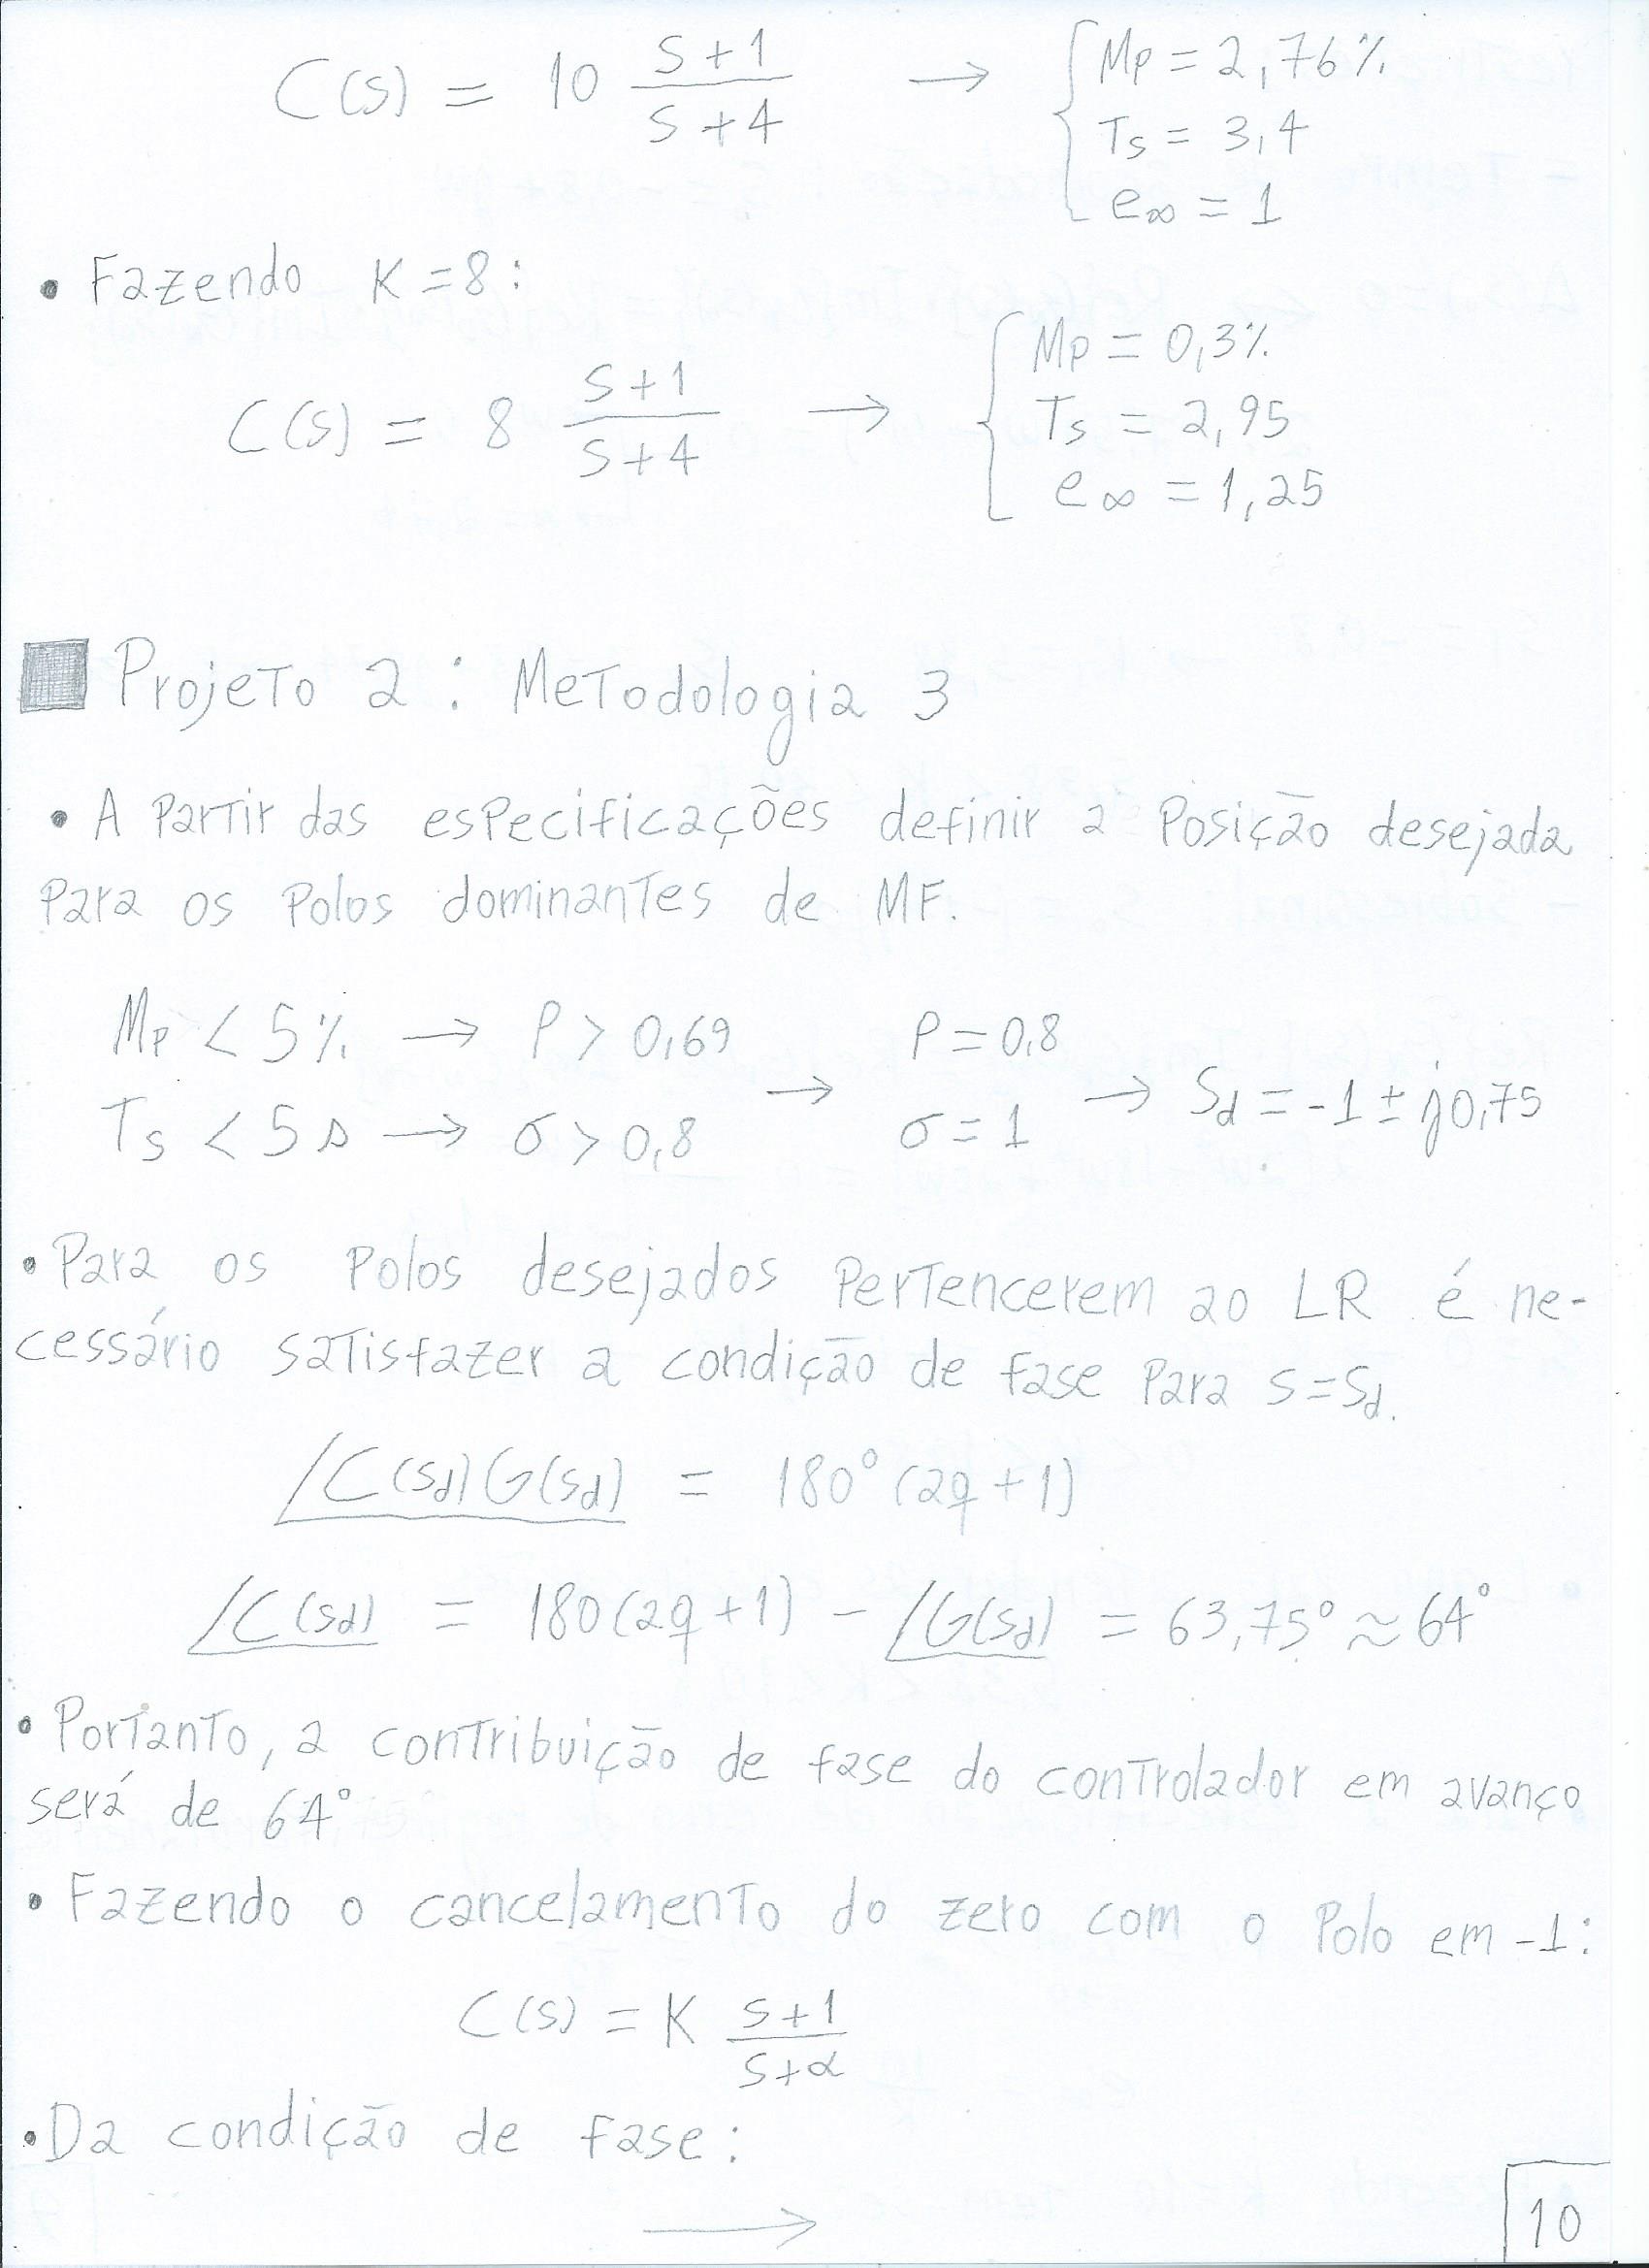 C(s) = 10 (s+1)/(s+4) → { Mp = 2,76%
Ts = 3,4
e∞ = 1
• Fazendo K=8:
C(s) = 8 (s+1)/(s+4) → { Mp = 0,3%
Ts = 2,95
e∞ = 1,25
Projeto 2 : Metodologia 3
• A partir das especificações definir a posição desejada
para os polos dominantes de MF.
Mp < 5% → ρ > 0,69 → ρ = 0,8 → Sd = -1 ± j0,75
Ts < 5s → σ > 0,8 σ = 1
• Para os polos desejados pertencerem ao LR é ne-
cessário satisfazer a condição de fase para s=sd.
∠C(sd)G(sd) = 180°(2q+1)
∠C(sd) = 180(2q+1) - ∠G(sd) = 63,75° ≈ 64°
• Portanto, a contribuição de fase do controlador em avanço
será de 64°
• Fazendo o cancelamento do zero com o polo em -1:
C(s) = K (s+1)/(s+α)
• Da condição de fase:
→
10